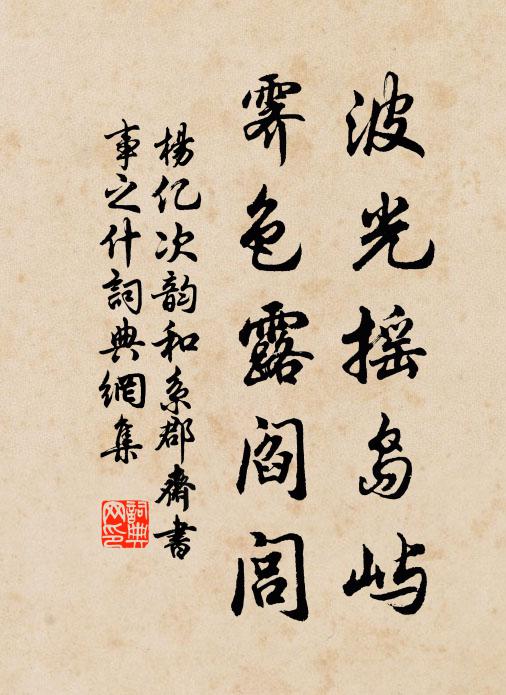 波光摇岛屿
霁色露阎闾
杨亿次韵和系郡斋书
事之什词典网集
词典网印